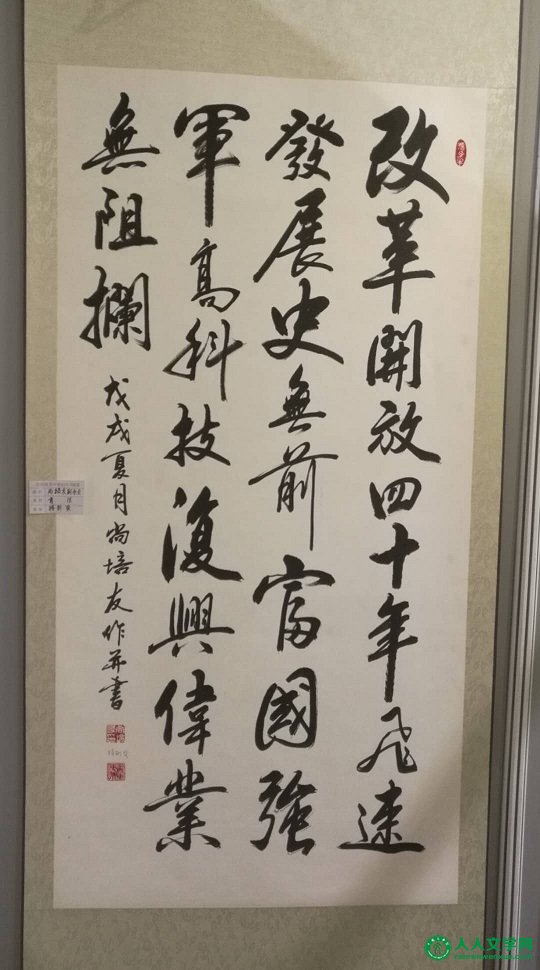 改革開放四十年飛速
發展史無前富國強
軍高科技復興偉業
無阻攔
戊戌夏月尚培友作并書
人人文学网